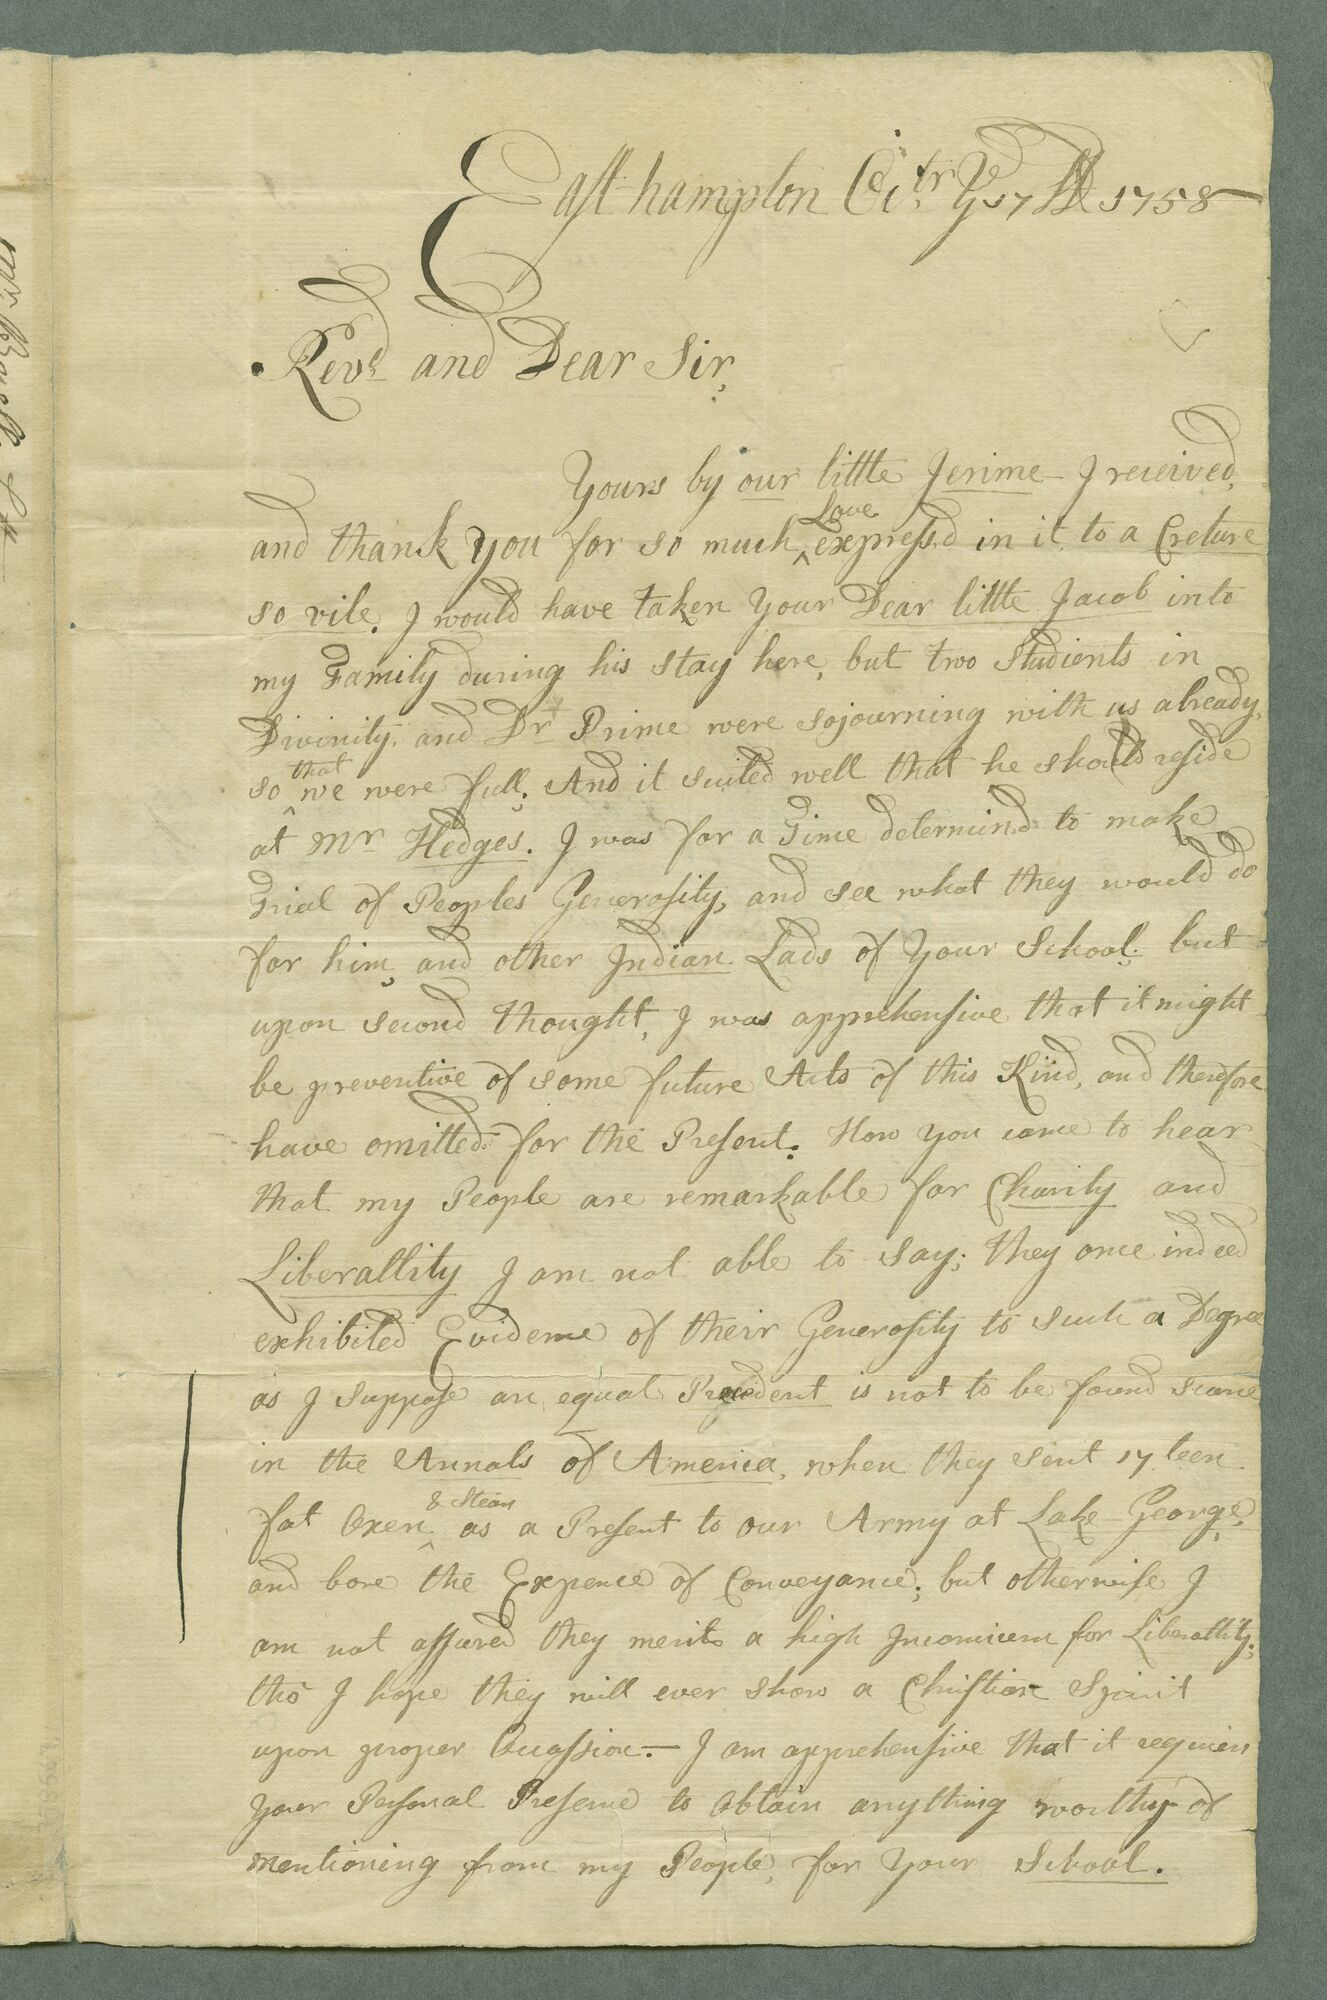 East hampton Octr. Ye 17th 1758
Revd. and Dear Sir,
Yours by our little Jerime I received,
Love
and thank You for so much ^ express'd in it to a Creture
so vile. I would have taken Your Dear little Jacob into
my Family during his stay here, but two Studients in
Divinity, and Dr Prime were sojourning with us already,
that
so ^ we were full; And it suited well that he should reside
at Mr Hedges. I was for a Time determind to make
Trial of Peoples Generosity, and see what they would do
for him, and other Indian Lads of Your School; but
upon second thought, I was apprehensive that it might
be preventive of some future Acts of this Kind, and therefore
have omitted for the Present. How you came to hear
that my People are remarkable for Charity and
Liberallity I am not able to say; they once indeed
exhibited Evidence of their Generosity to such a Degree
as I suppose an equal Precedent is not to be found scarce
in the Annals of America, when they sent 17 teen
& Stears
fat Oxen ^ as a Present to our Army at Lake George,
and bore the Expence of Conveyance; but otherwise I
am not assured they merit a high Incomium for Liberallity;
tho I hope they will ever show a Christian Spirit
upon proper Occassion.— I am apprehensive that it requires
Your Personal Presence to obtain anything worthy of
mentioning from my People, for Your School.